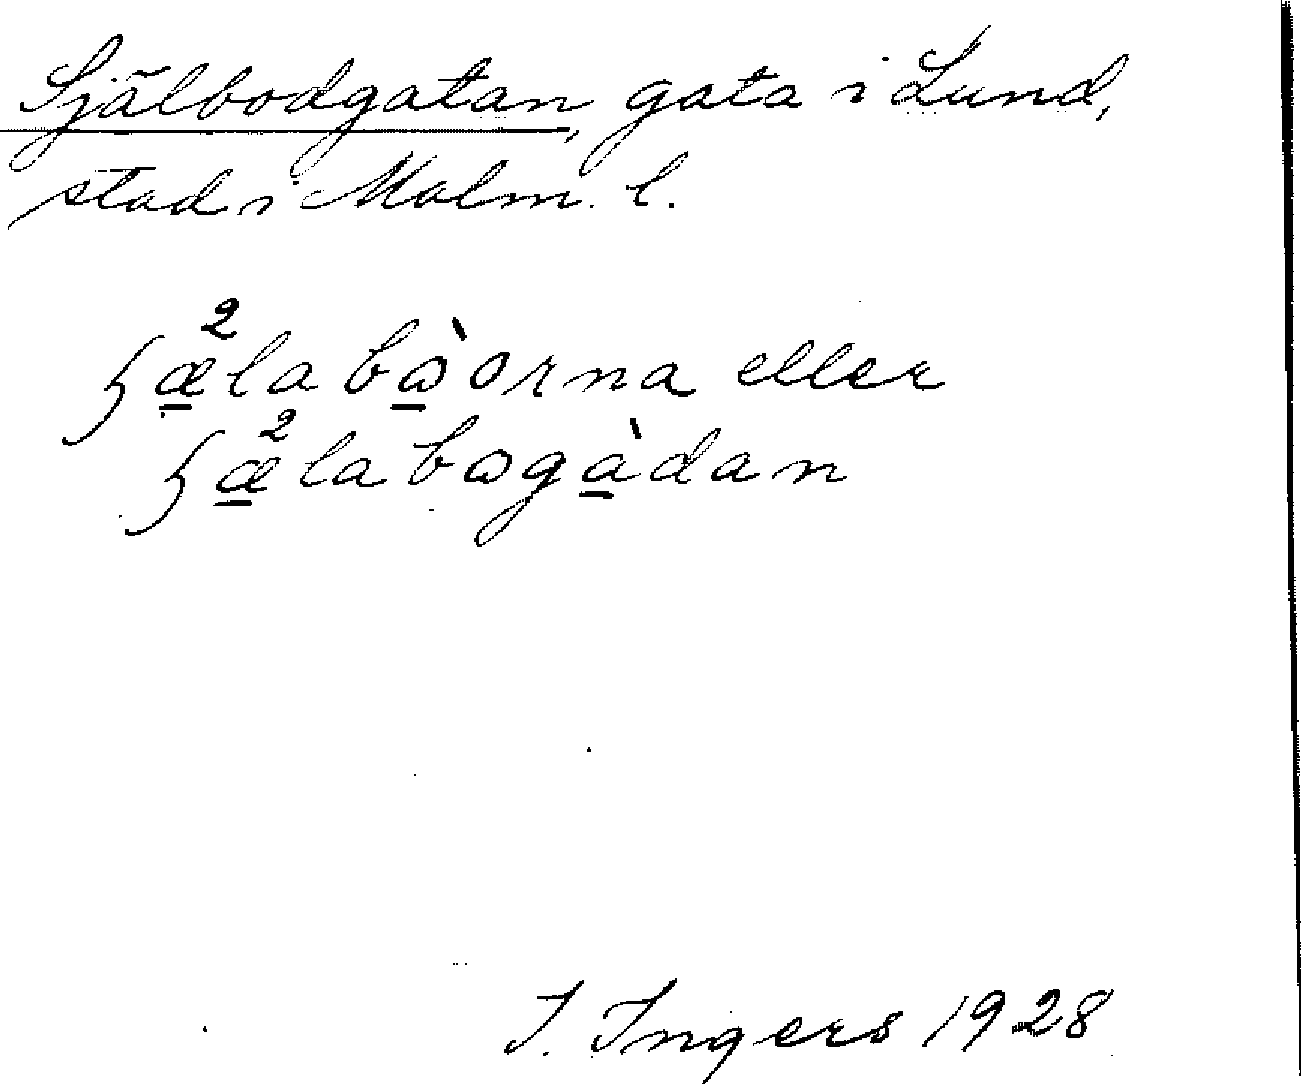 Själbodgatan, gata i Lund,
stad i Malm. l.
ɧæ̱²labɷ̱̀orna eller
ɧæ̱²labɷgà̱dan
I. Ingers 1928